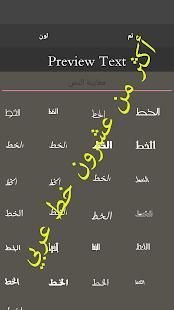 تم لون
Preview Text
معاينة النص
أكثر من عشرون خط عربي
الخط الخط الخط الخط
الخط الخط الخط الخط
الخط الخط الخط الخط
الخط الخط الخط
الخط الخط الخط الخط
الخط الخط الخط الخط